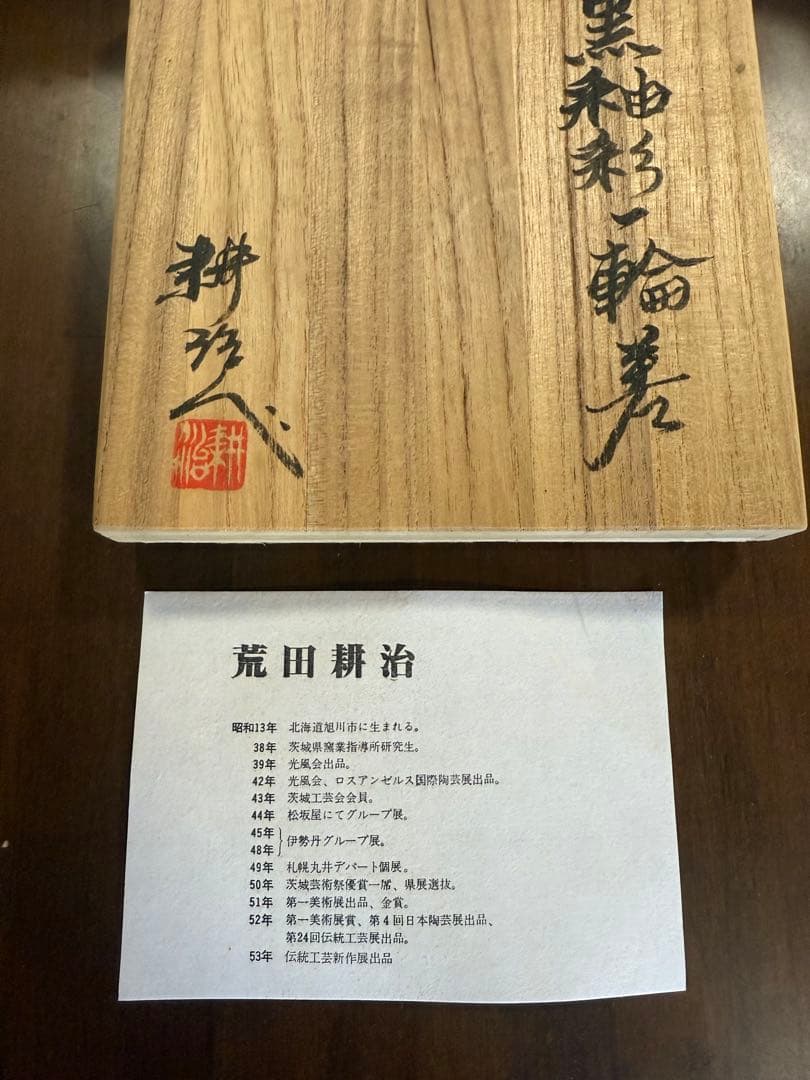 黒釉彩一輪差
耕治
耕治
荒田耕治
昭和13年 北海道旭川市に生まれる。
38年 茨城県窯業指導所研究生。
39年 光風会出品。
42年 光風会、ロスアンゼルス国際陶芸展出品。
43年 茨城工芸会会員。
44年 松坂屋にてグループ展。
45年
48年 伊勢丹グループ展。
49年 札幌丸井デパート個展。
50年 茨城芸術祭優賞一席、県展選抜。
51年 第一美術展出品、金賞。
52年 第一美術展賞、第4回日本陶芸展出品、
第24回伝統工芸展出品。
53年 伝統工芸新作展出品